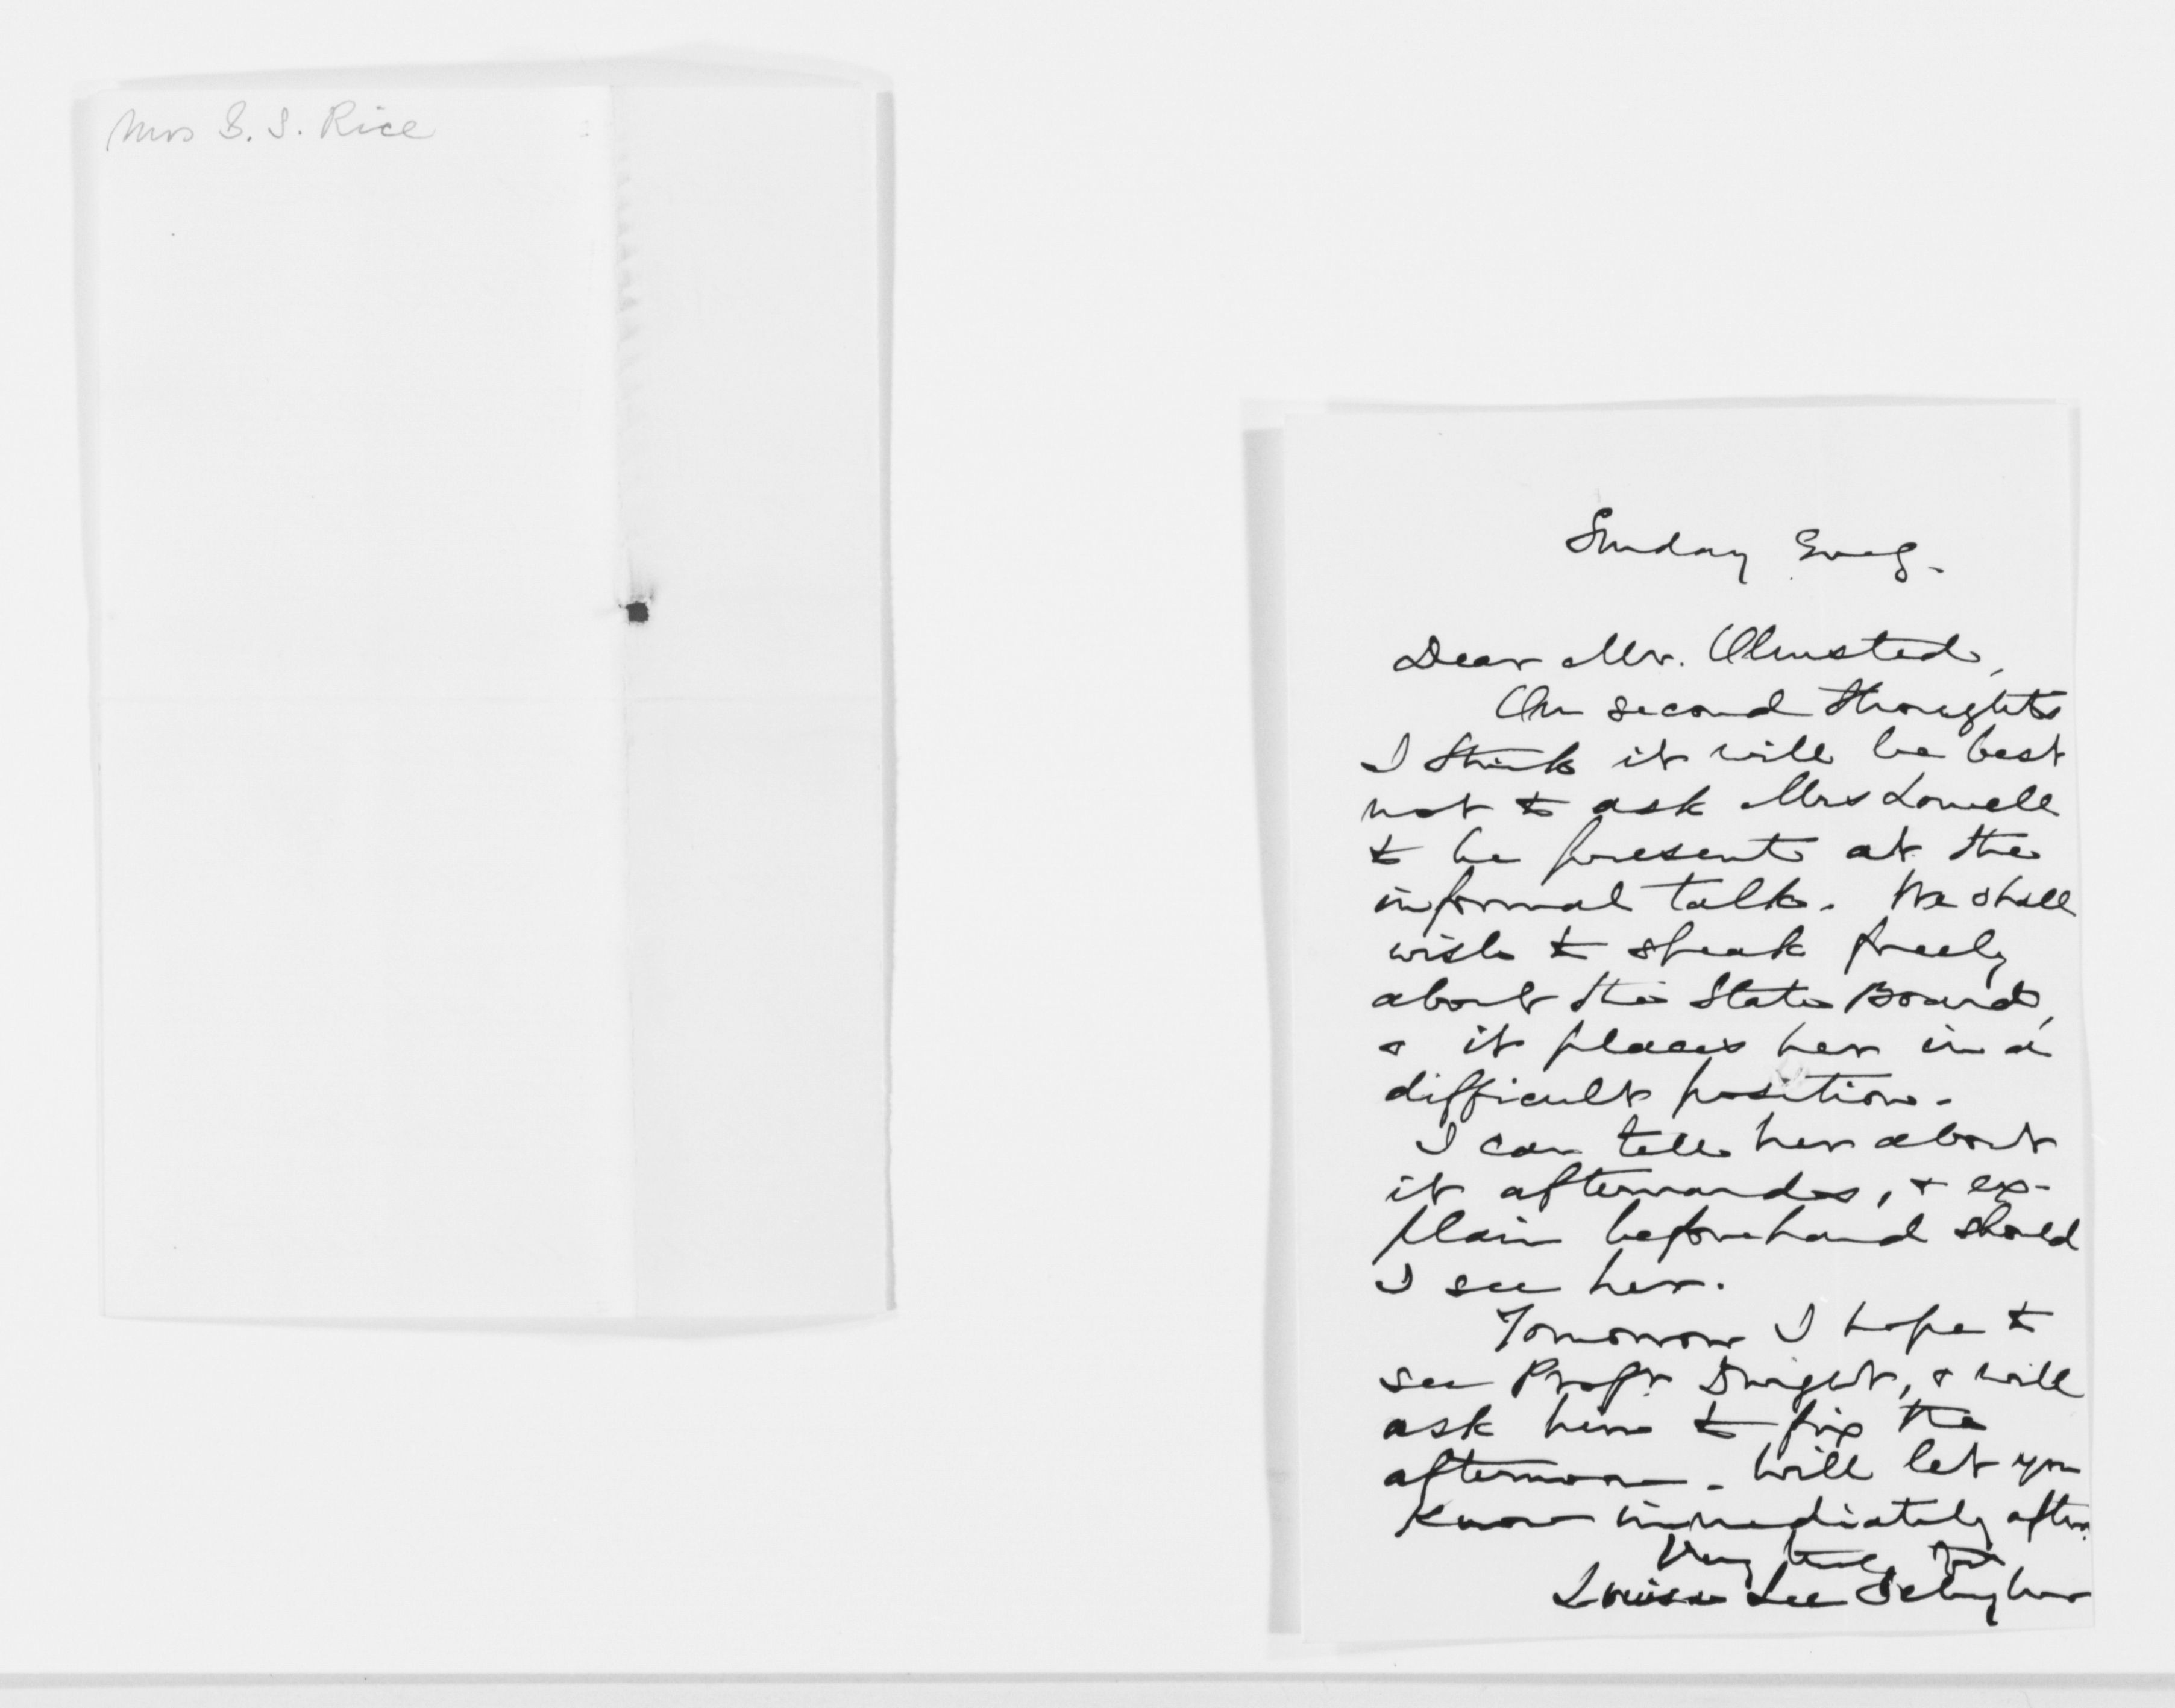 Mrs S. S. Rice
Sunday Evg.
Dear Mr. Olmsted,
On second thoughts
I think it will be best
not to ask Mrs Lowell
to be present at the
informal talk. We shall
wish to speak freely
about the State Board,
& it places her in a
difficult position.
I can tell her about
it afterwards, & ex-
plain beforehand should
I see her.
Tomorrow I hope to
see Profr Dwight, & will
ask him to fix the
afternoon. Will let you
know immediately after.
Very truly yrs
Louisa Lee Schuyler